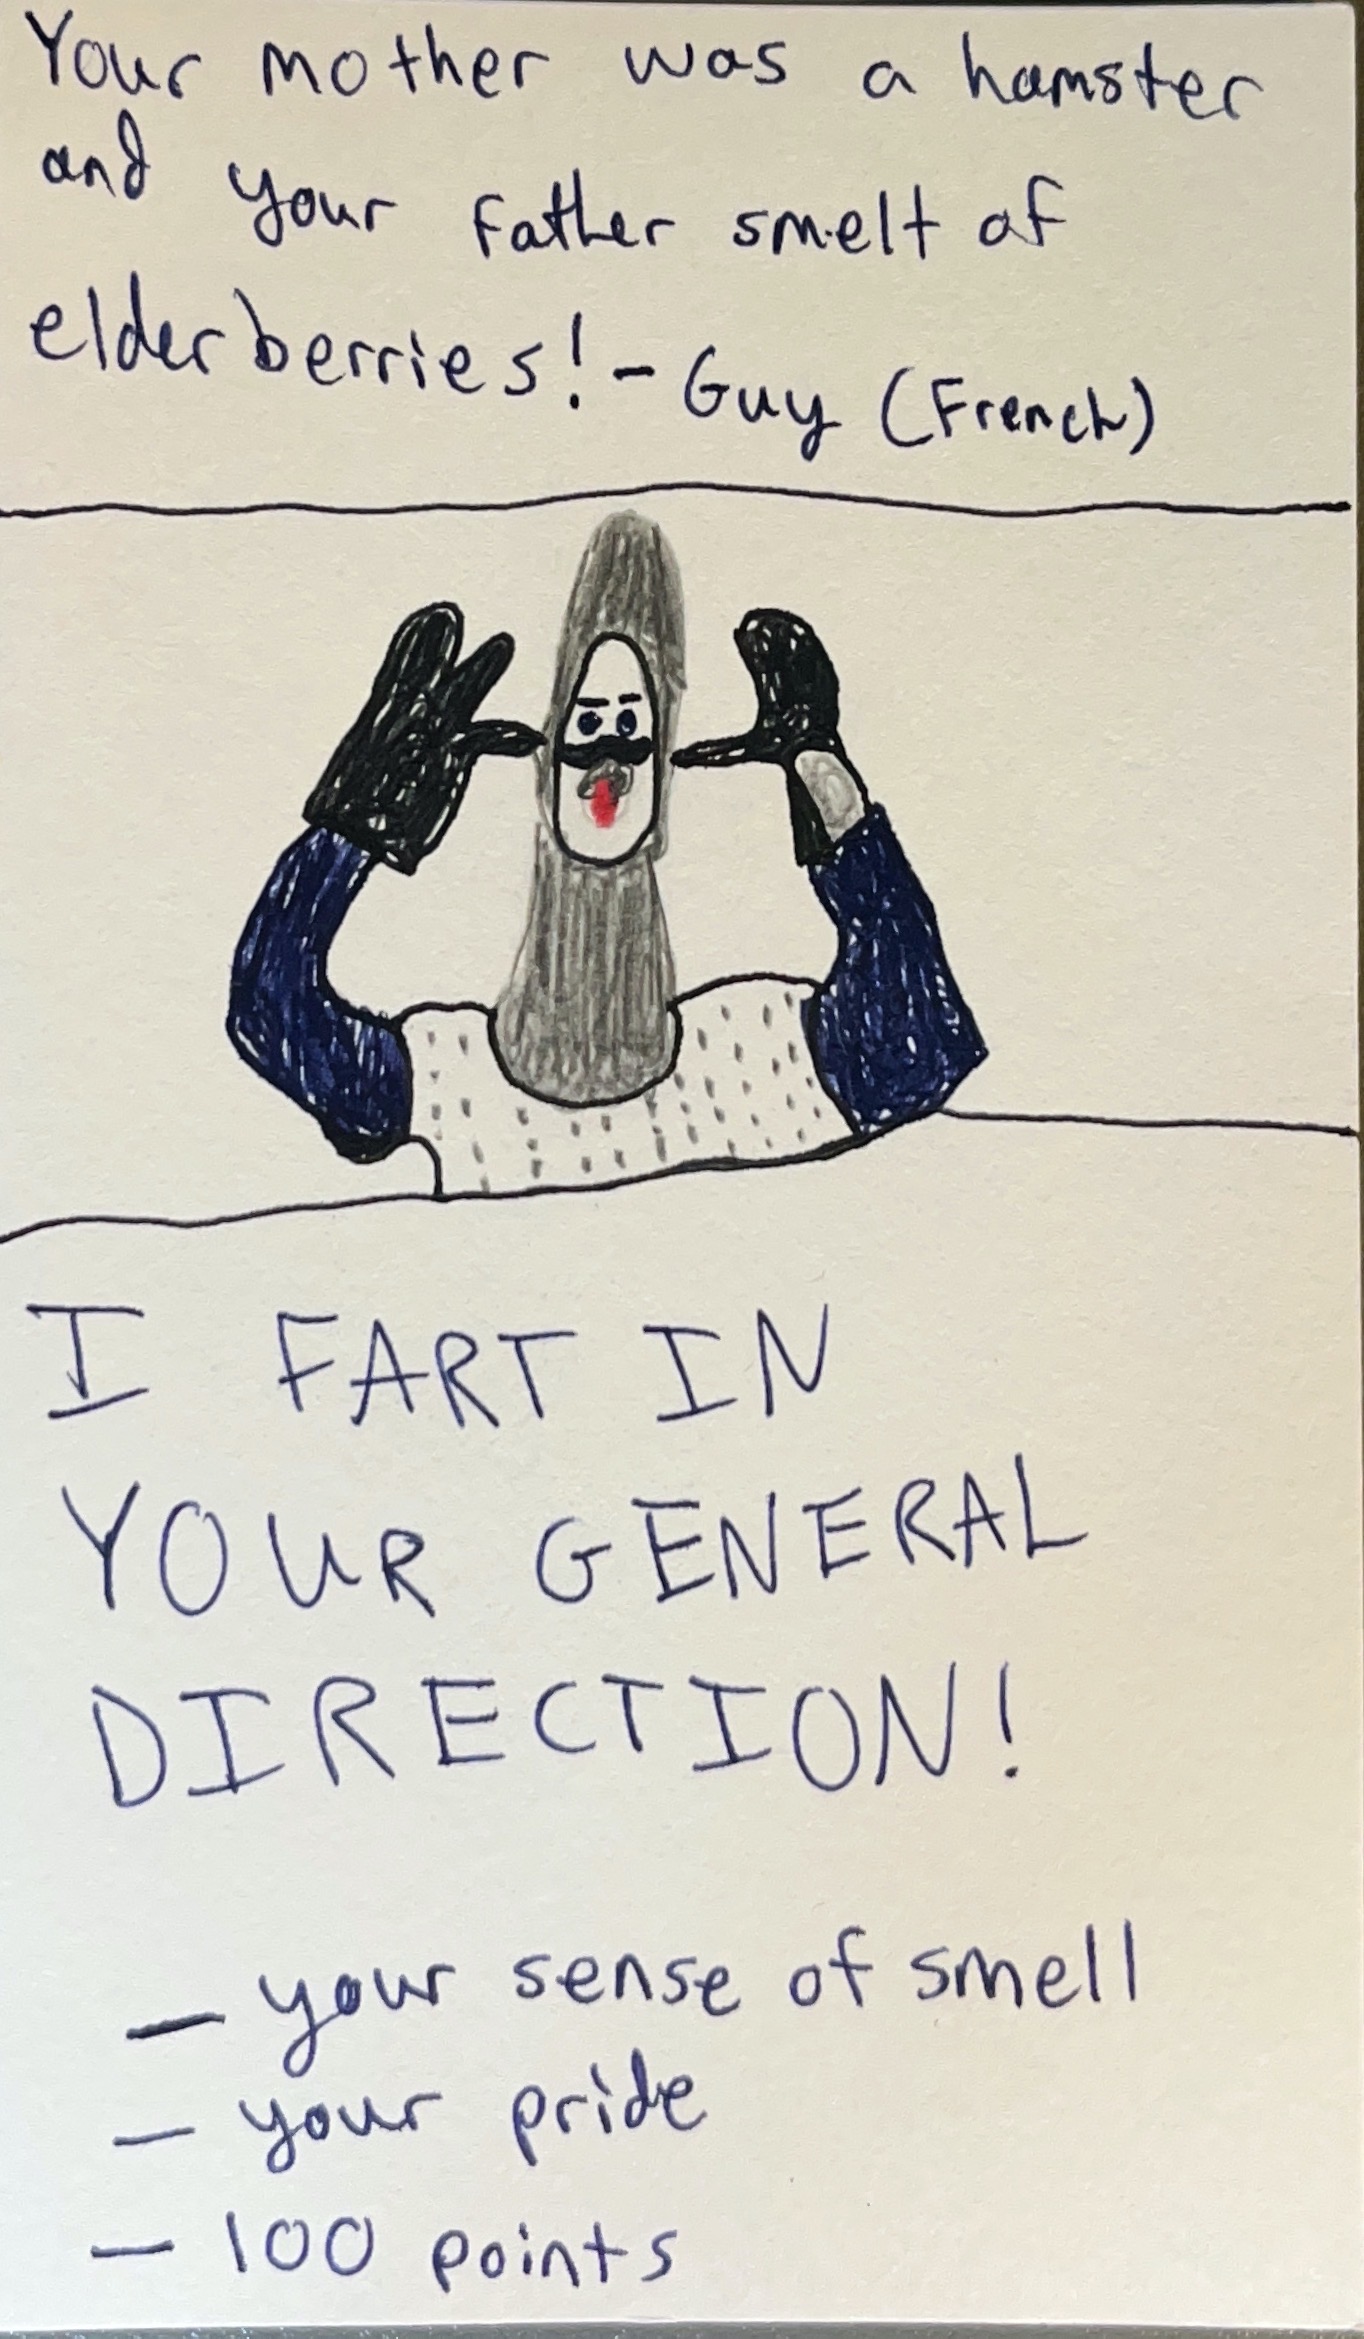 Your mother was a hamster
and your father smelt of
elderberries! - Guy (French)
I FART IN
YOUR GENERAL
DIRECTION!
- your sense of smell
- your pride
- 100 points